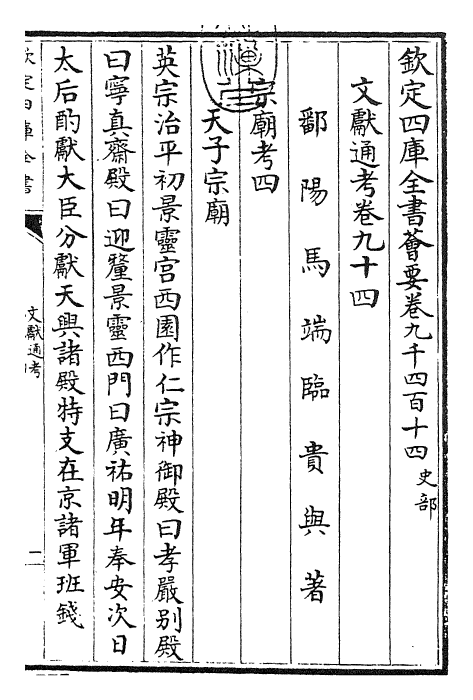 欽定四庫全書薈要卷九千四百十四 史部
文獻通考卷九十四
鄱陽馬端臨貴與著
宗廟考四
天子宗廟
英宗治平初景靈宮西園作仁宗神御殿曰孝嚴别殿
曰寧真齋殿曰迎釐景靈西門曰廣祐明年奉安次日
太后酌獻大臣分獻天興諸殿特支在京諸軍班錢
欽定四庫全書
文獻通考